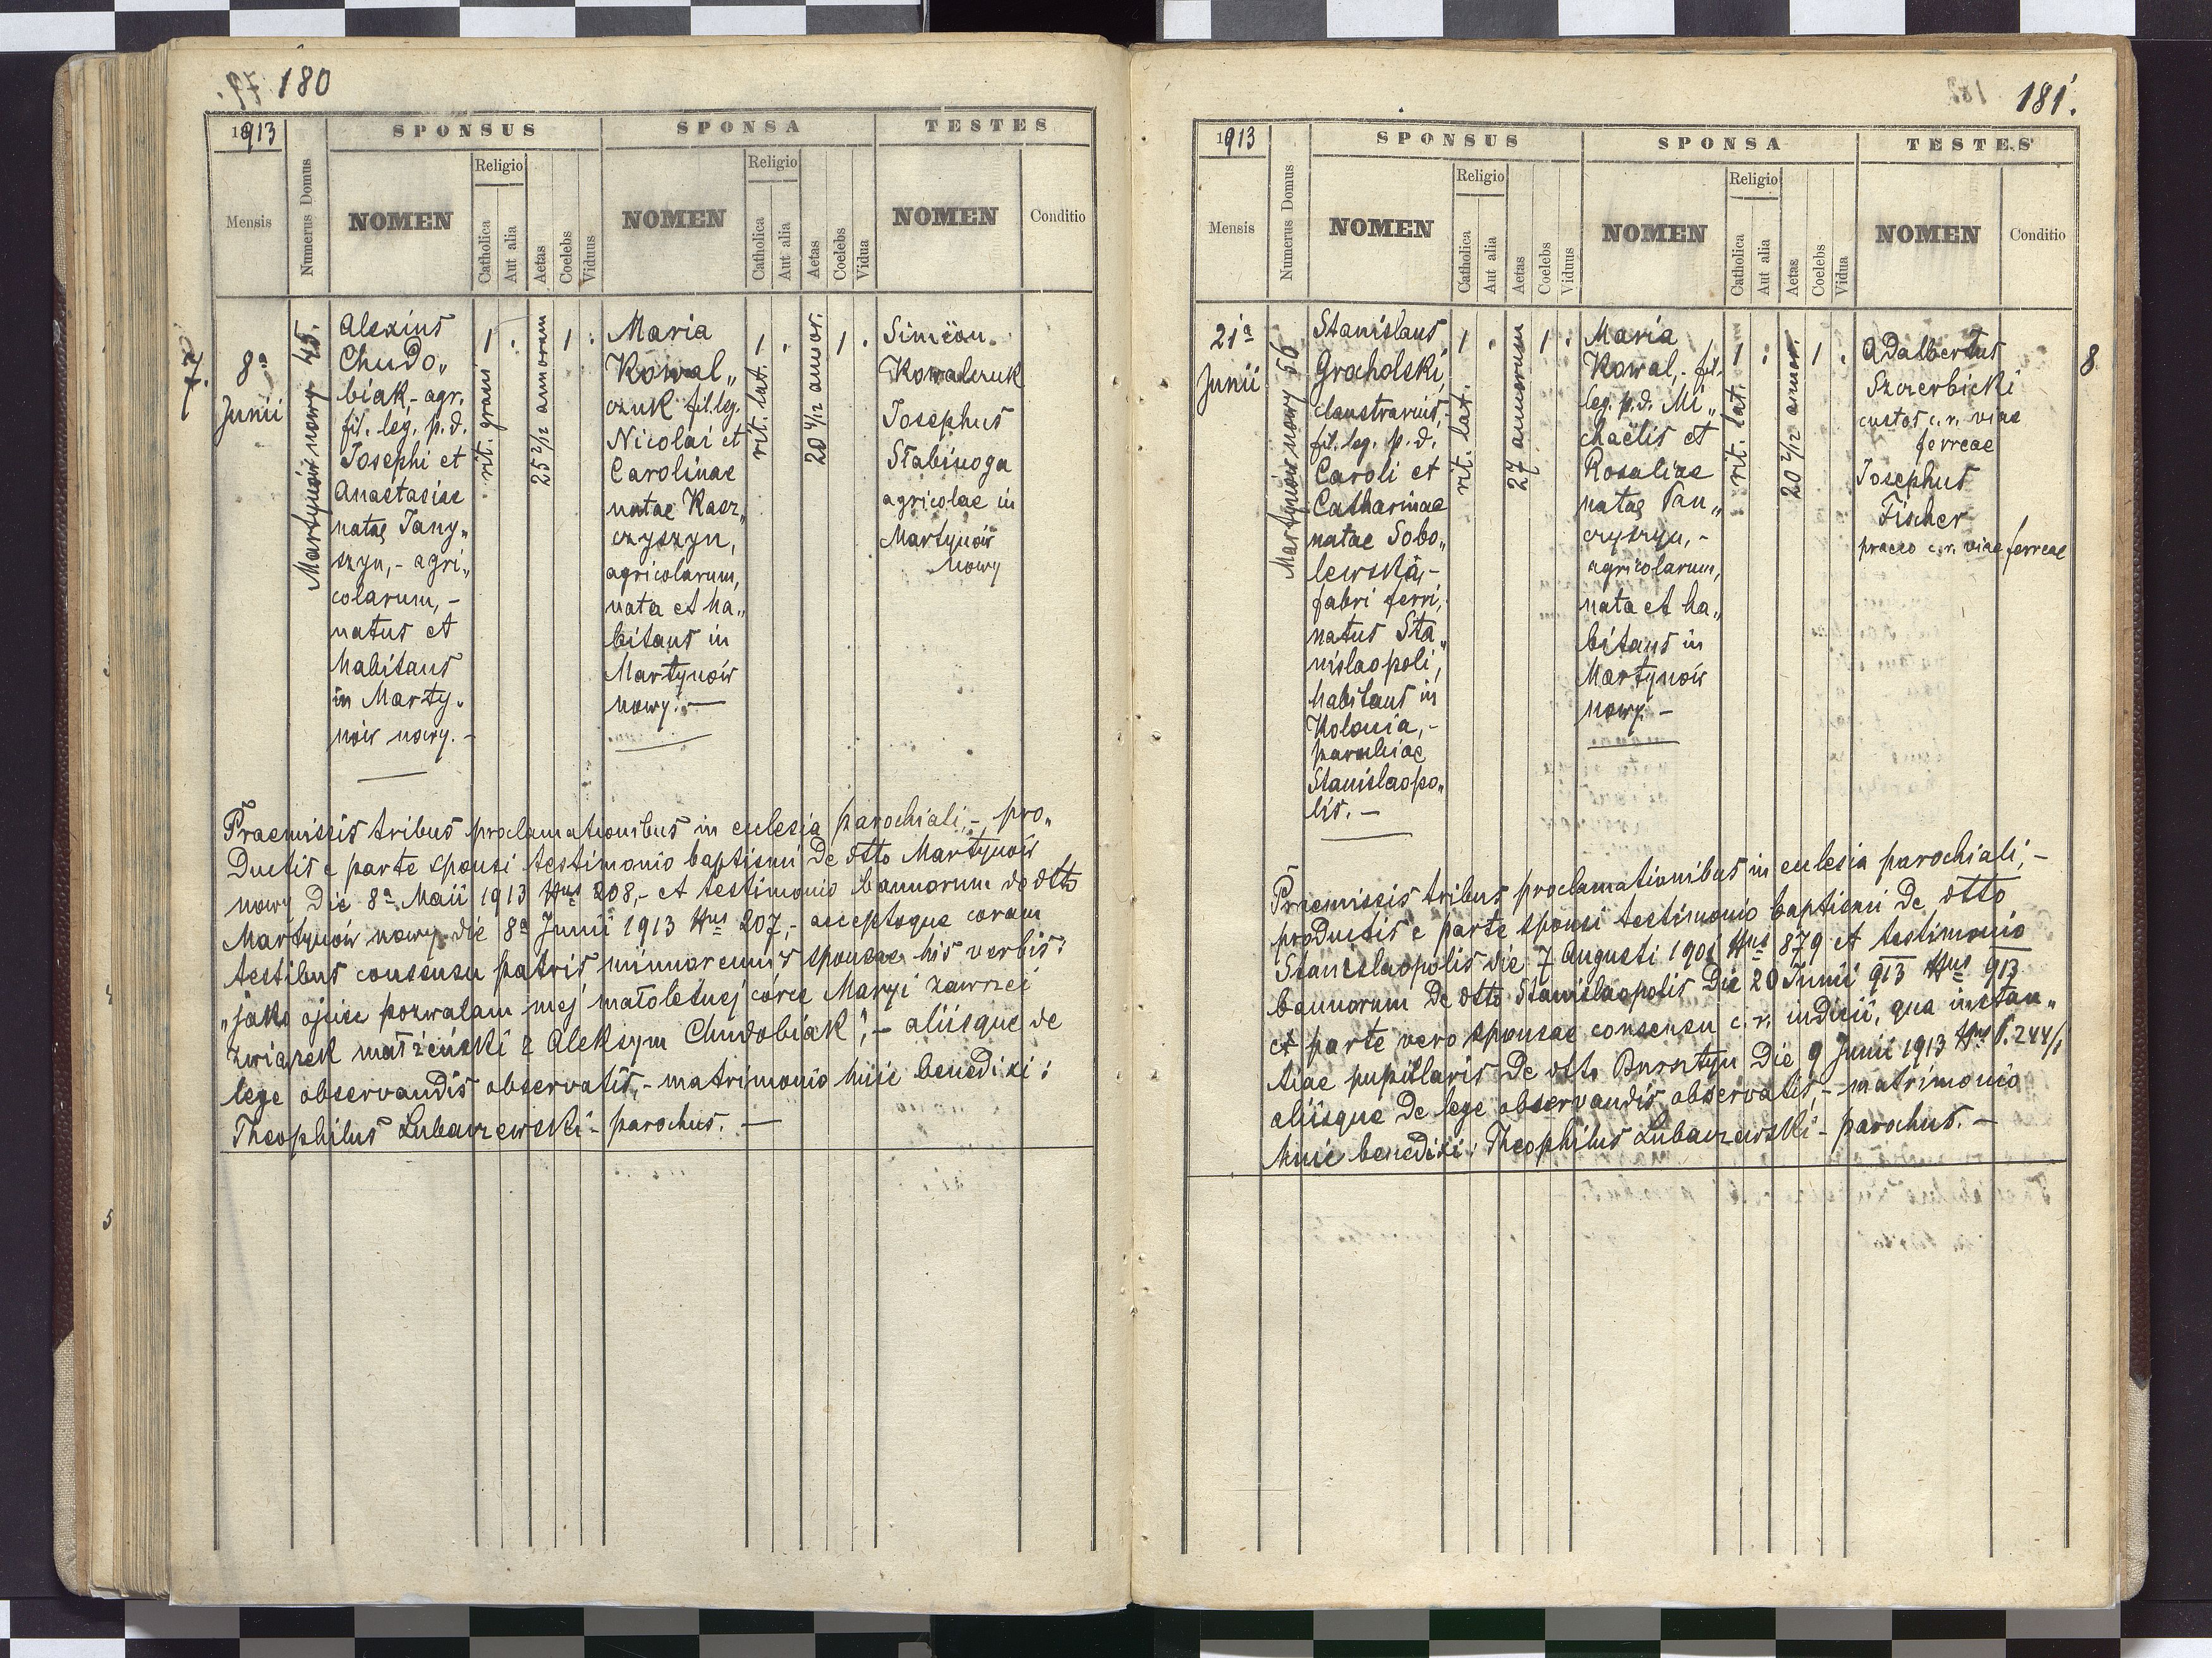 180
1913
SPONSUS
SPONSA
TESTES
Mensis
Numerus Domus
NOMEN
Religio
Catholica
Aut alia
Aetas
Coelebs
Viduus
NOMEN
Religio
Catholica
Aut alia
Aetas
Coelebs
Vidua
NOMEN
Conditio
7.
8a
Junii
Martynów nowy 45.
Alexius
Chudo„
biak - agr.
fil. leg. p. d.
Josephi et
Anastasiae
natae Jany„
szyn, - agri„
colarum, -
natus et
habitans
in Marty„
nów nowy. -
1
rit. graeci
25 2/12 annorum
1
Maria
Kowal„
czuk fil. leg.
Nicolai et
Carolinae
natae Kacz„
czyszyn,
agricolarum,
nata et ha„
bitans in
Martynów
nowy. -
1
rit. lat.
20 4/12 annor.
1
Simeon
Kowalczuk
Josephus
Słabinoga
agricolae in
Martynów
nowy
Praemissis tribus proclamationibus in ecclesia parochiali, - pro„
ductis e parte sponsi testimonio baptismi de dtto Martynów
nowy die 8a Maii 1913 Nus 208, - et testimonio bannorum de dtto
Martynów nowy die 8a Junii 1913 Nus 207, - acceptoque coram
testibus consensu patris minorennis sponsae his verbis:
„jako ojciec pozwalam mej małoletniej córce Maryi zawrzeć
związek małżeński z Aleksym Chudobiak", - aliisque de
lege observandis observatis, - matrimonio huic benedixi:
Theophilus Lubaczewski - parochus. -
181.
1913
SPONSUS
SPONSA
TESTES
Mensis
Numerus Domus
NOMEN
Religio
Catholica
Aut alia
Aetas
Coelebs
Viduus
NOMEN
Religio
Catholica
Aut alia
Aetas
Coelebs
Vidua
NOMEN
Conditio
21a
Junii
Martynów nowy 56
Stanislaus
Grocholski,
claustrarius,
fil. leg. p. d.
Caroli et
Catharinae
natae Sobo„
lewska, -
fabri ferri,
natus Sta„
nislaopoli,
habitans in
Kolonia, -
parochiae
Stanislaopo„
lis. -
1
rit. lat.
27 annorum
1
Maria
Kowal, - fil.
leg. p. d. Mi„
chaëlis et
Rosaliae
natae Pan„
czyszyn, -
agricolarum,
nata et ha„
bitans in
Martynów
nowy. -
1
rit. lat.
20 2/12 annor.
1
Adalbertus
Szczerbicki
custos c. r. viae
ferreae
Josephus
Fischer
praeco c. r. viae ferreae
8
Praemissis tribus proclamationibus in ecclesia parochiali, -
productis e parte sponsi testimonio baptismi de dtto
Stanislaopolis die 7 Augusti 1901 Nus 879 et testimonio
bannorum de dtto Stanislaopolis die 20 Junii 913 Nus 913
et parte vero sponsae consensu c. r. iudicii, qua instan„
tiae pupillaris de dtto Bursztyn die 9 Junii 1913 Nus P. 244/1
aliisque de lege observandis observatis, - matrimonio
huic benedixi: Theophilus Lubaczewski - parochus. -